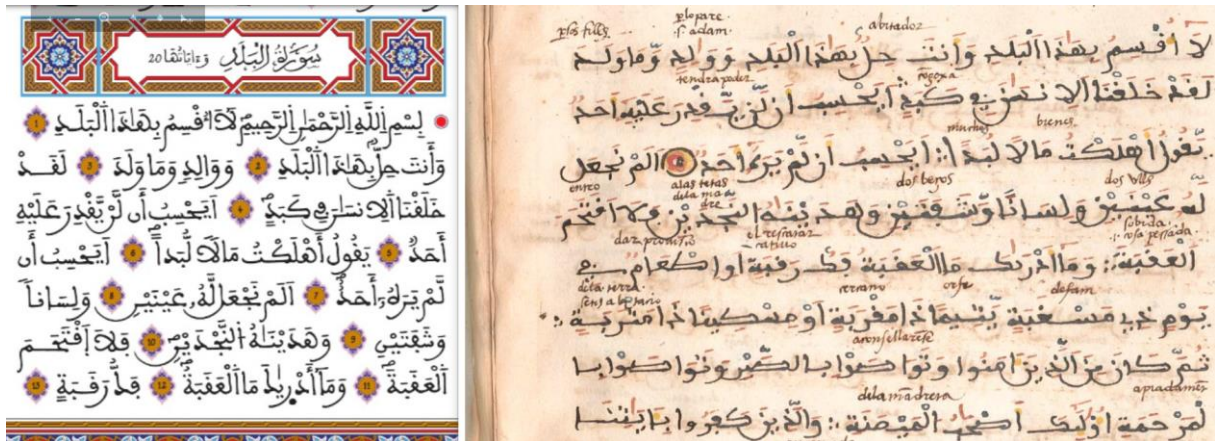 سُورَةُ الْبَلَدِ وَءَايَاتُهَا 20
بِسْمِ اللَّهِ الرَّحْمَٰنِ الرَّحِيمِ لَا أُقْسِمُ بِهَٰذَا الْبَلَدِ 1
وَأَنتَ حِلٌّ بِهَٰذَا الْبَلَدِ 2 وَوَالِدٍ وَمَا وَلَدَ 3 لَقَدْ
خَلَقْنَا الْإِنسَٰنَ فِي كَبَدٍ 4 أَيَحْسِبُ أَن لَّنْ يَّقْدِرَ عَلَيْهِ
أَحَدٌ 5 يَقُولُ أَهْلَكْتُ مَالًا لُّبَدًا 6 أَيَحْسِبُ أَن
لَّمْ يَرَهُ أَحَدٌ 7 أَلَمْ نَجْعَل لَّهُ عَيْنَيْنِ 8 وَلِسَانًا
وَشَفَتَيْنِ 9 وَهَدَيْنَٰهُ النَّجْدَيْنِ 10 فَلَا اقْتَحَمَ
الْعَقَبَةَ 11 وَمَا أَدْرَىٰكَ مَا الْعَقَبَةُ 12 فَكُّ رَقَبَةٍ 13
abitador
.s. adam.
لَا أُقْسِمُ بِهَٰذَا الْبَلَدِ وَأَنتَ حِلٌّ بِهَٰذَا الْبَلَدِ وَوَالِدٍ وَّمَا وَلَدَ
tendra poder
لَقَدْ خَلَقْنَا الْإِنسَٰنَ فِي كَبَدٍ أَيَحْسِبُ أَن لَّنْ يَّقْدِرَ عَلَيْهِ أَحَدٌ
muchos bienes
يَّقُولُ أَهْلَكْتُ مَالًا لُّبَدًا أَيَحْسِبُ أَن لَّمْ يَرَهُ أَحَدٌ أَلَمْ نَجْعَل
alas tetas dela madre
dos beros
dos ulls
لَّهُ عَيْنَيْنِ وَلِسَانًا وَّشَفَتَيْنِ وَهَدَيْنَٰهُ النَّجْدَيْنِ فَلَا اقْتَحَمَ
el rescatar catiuo
cosa pessada
الْعَقَبَةَ وَمَا أَدْرَىٰكَ مَا الْعَقَبَةُ فَكُّ رَقَبَةٍ أَوْ إِطْعَٰمٌ فِي
dela terra
cercano
orfe
defam
يَوْمٍ ذِي مَسْغَبَةٍ يَّتِيمًا ذَا مَقْرَبَةٍ أَوْ مِسْكِينًا ذَا مَتْرَبَةٍ
ثُمَّ كَانَ مِنَ الَّذِينَ ءَامَنُوا وَتَوَاصَوْا بِالصَّبْرِ وَتَوَاصَوْا بِا
dela man dreta
لْمَرْحَمَةِ أُولَٰئِكَ أَصْحَٰبُ الْمَيْمَنَةِ وَالَّذِينَ كَفَرُوا بِـَٔايَٰتِنَا